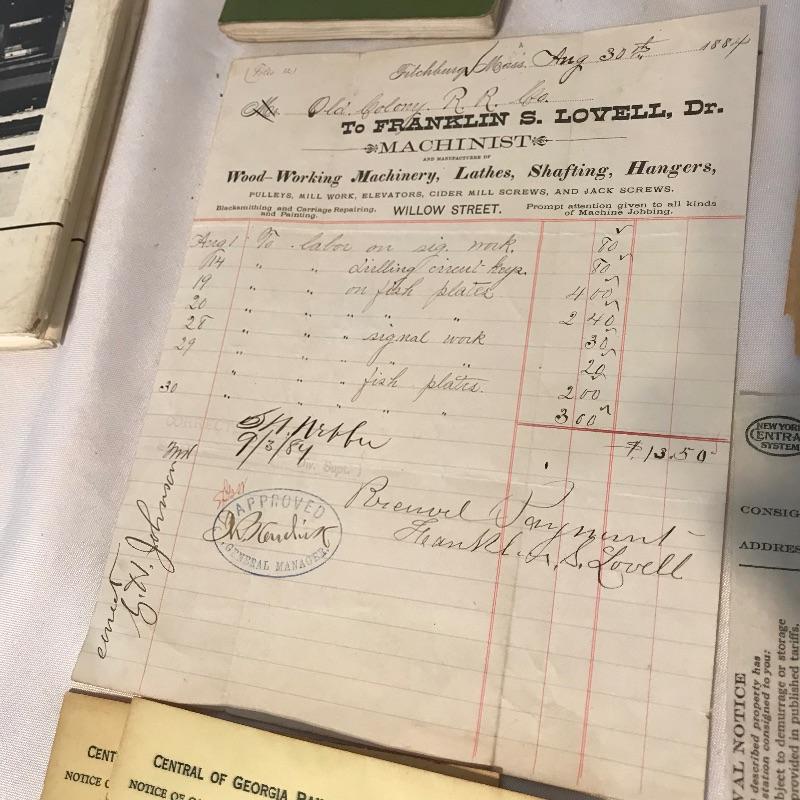 Fitchburg, Mass. Aug 30th. 1884
Old Colony R. R. Co.
To FRANKLIN S. LOVELL, Dr.
MACHINIST
AND MANUFACTURER OF
Wood-Working Machinery, Lathes, Shafting, Hangers,
PULLEYS, MILL WORK, ELEVATORS, CIDER MILL SCREWS, AND JACK SCREWS.
Blacksmithing and Carriage Repairing, and Painting.
WILLOW STREET.
Prompt attention given to all kinds of Machine Jobbing.
Aug 1 To labor on sig. work 80
14 " " drilling circuit keys. 80
19 " " on fish plates 4 00
20 " " " " " 2 40
28 " " " signal work 30
29 " " " " " 20
" " " fish plates. 2 00
30 " " " " " 3 00
$13.50
CORRECT
9/3/84
Div. Supt.
APPROVED
GENERAL MANAGER.
Received Payment
Franklin S. Lovell
correct
Johnson
NEW YORK
CENTRAL
SYSTEM
CONSIG
ADDRES
VAL NOTICE
described property has
station consigned to you:
bject to demurrage or storage
provided in published tariffs.
CENT
NOTICE O
CENTRAL OF GEORGIA RAI
NOTICE OF